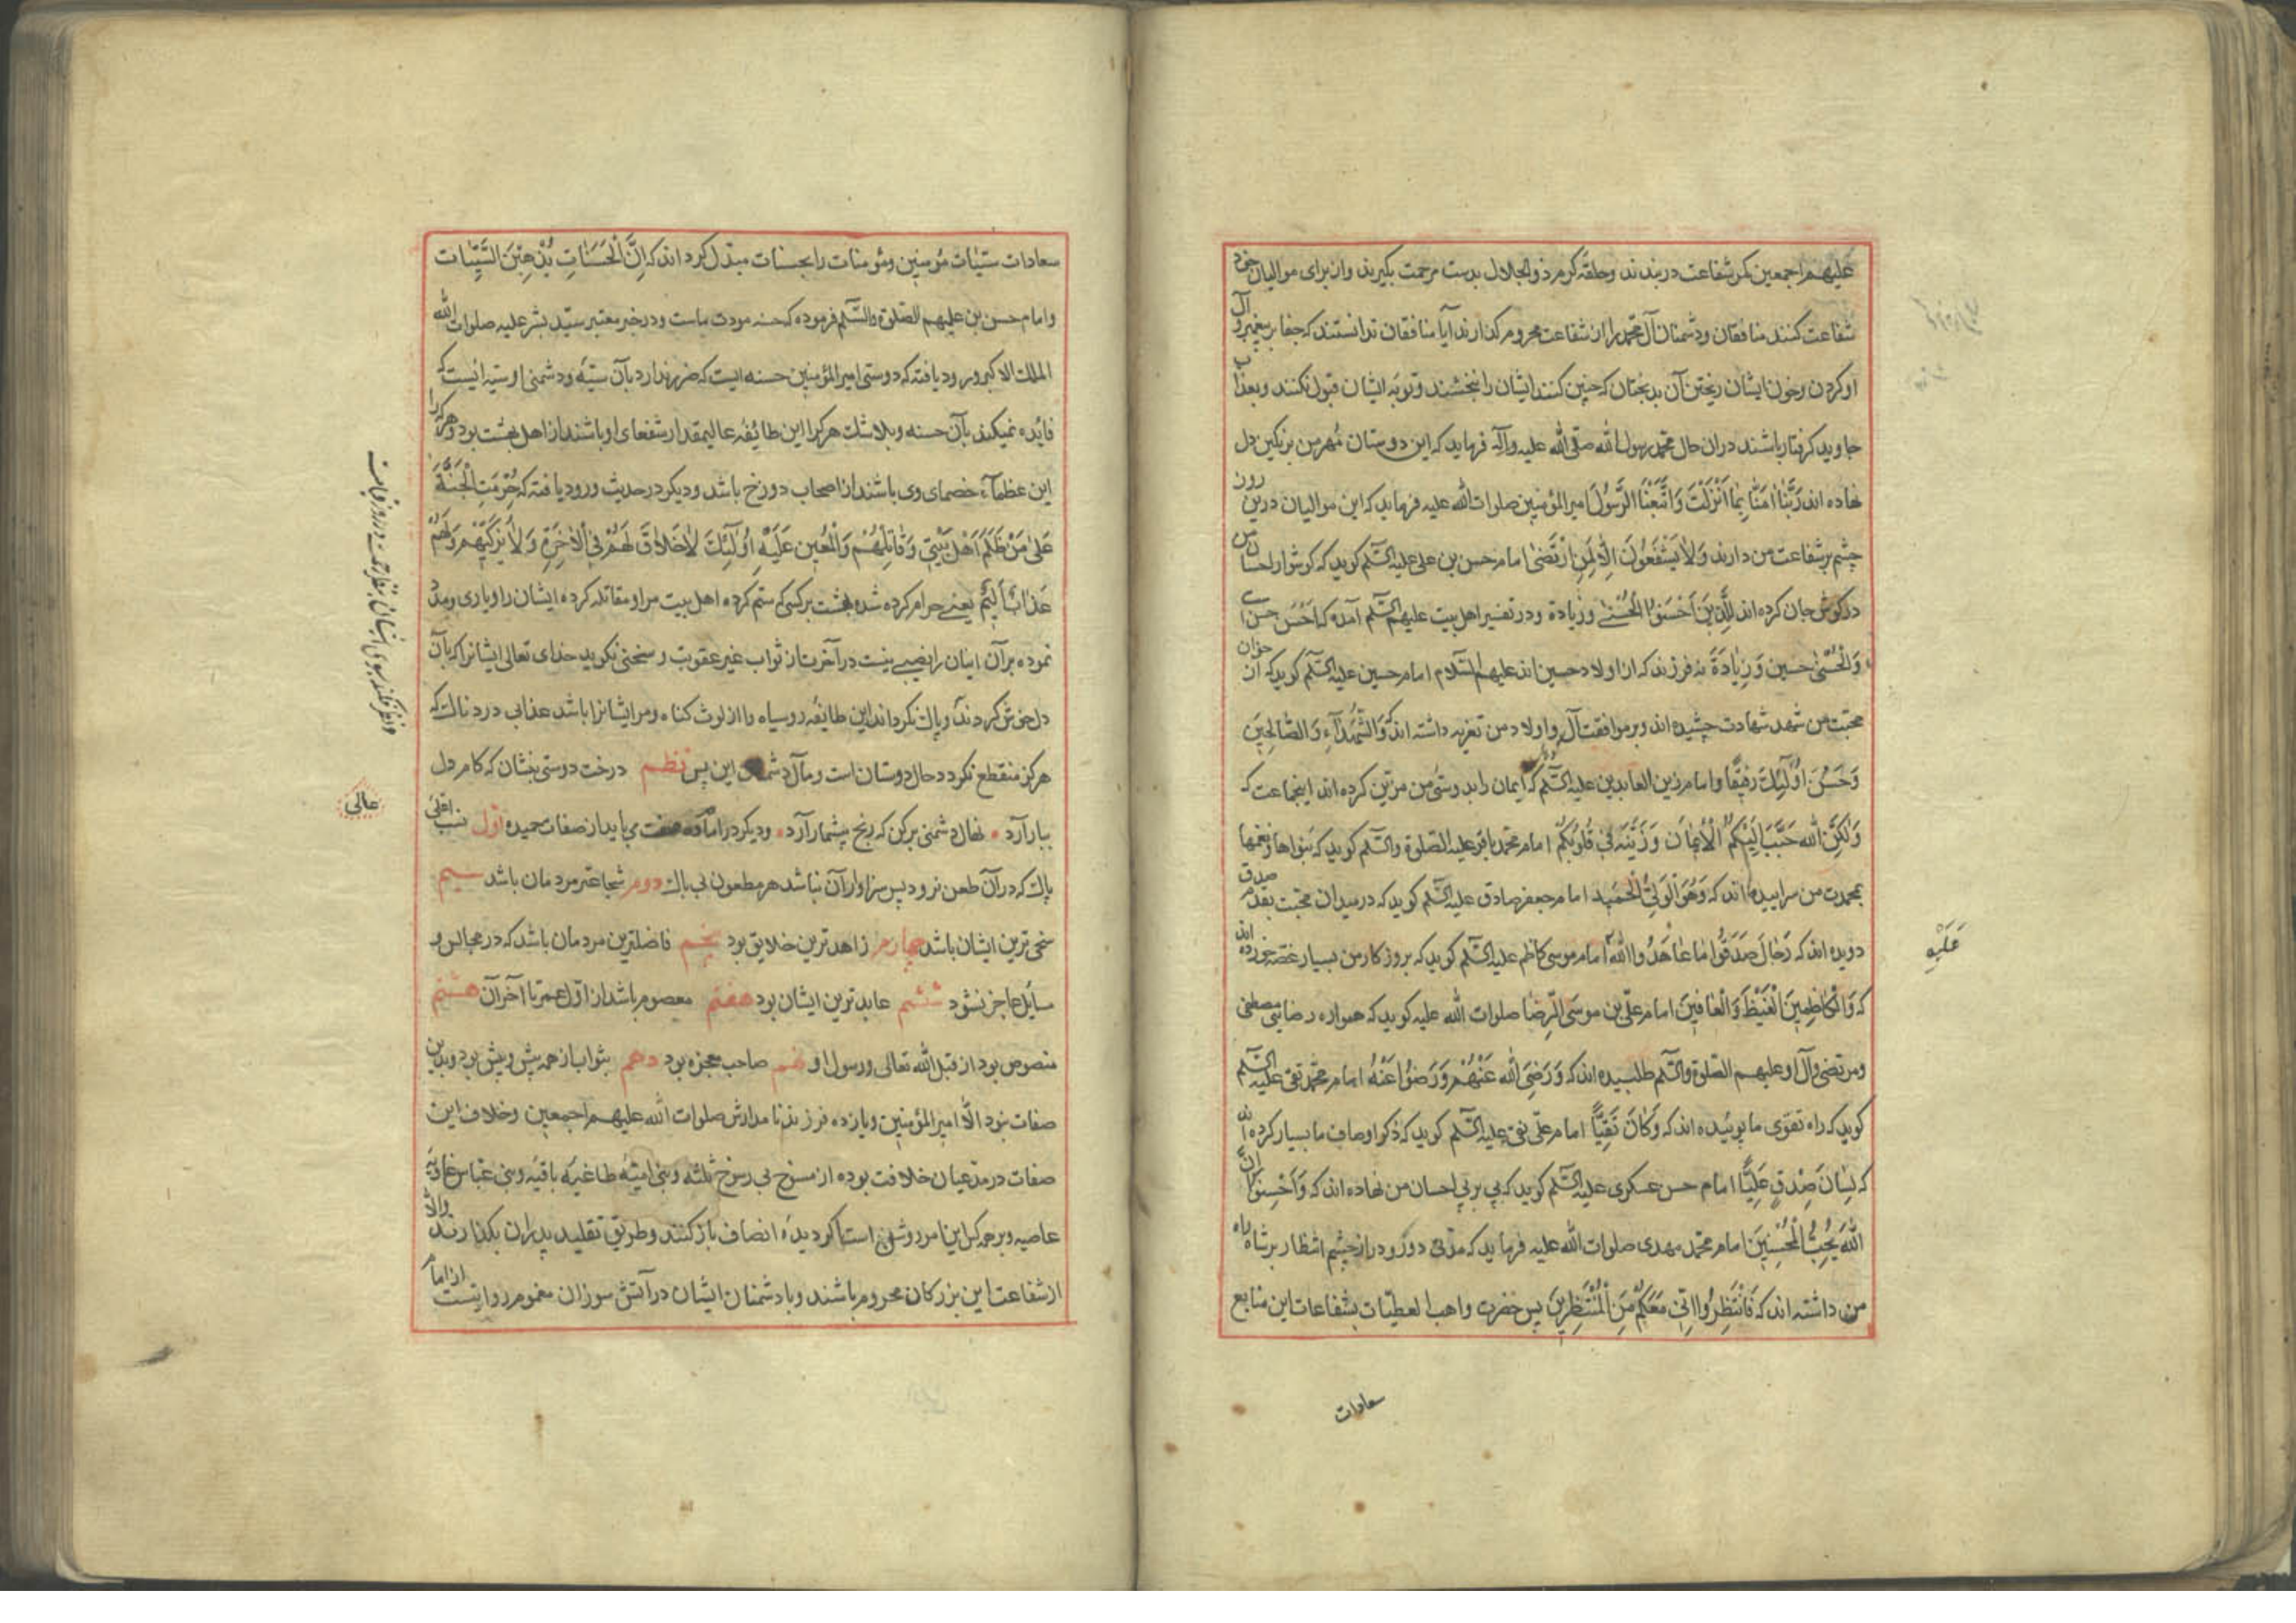 علیهم اجمعین کمر شفاعت در بندند و حلقه کرم ذو الجلال بدست مرحمت بکیرند و از برای موالیان خود
شفاعت کنند منافقان و دشمنان آل محمد را از شفاعت محروم کذارند آیا منافقان ندانستند که جفا بر پیغمبر و آل
او کردن و خون ایشان ریختن آن بدبختان که چنین کنند ایشان را نبخشند و توبه ایشان قبول نکنند و بعذاب
جاوید کرفتار باشند در ان حال محمد رسول الله صلی الله علیه وآله فرماید که این دوستان مهر من بر نکین دل
نهاده اند رَبَّنا اٰمَنّا بِما اَنْزَلْتَ وَاتَّبَعْنَا الرَّسُولَ امیر المؤمنین صلوات الله علیه فرماید که این موالیان درین روز
چشم بر شفاعت من دارند وَلا یَشْفَعُونَ اِلّا لِمَنِ ارْتَضیٰ امام حسن بن علی علیه السّلم کوید که کوشوار احسان من
در کوش جان کرده اند لِلَّذینَ اَحْسَنُوا الْحُسْنیٰ وزیادة و در تفسیر اهل بیت علیهم السّلم آمده که اَحْسَن حسن است
وَالْحُسْنیٰ حسین وَزِیادَةٌ نه فرزند که از اولاد حسین اند علیهم السّلام امام حسین علیه السّلم کوید که از خوان
محبت من شهد شهادت چشیده اند و بر موافقت آل و اولاد من تعزیه داشته اند که وَالشُّهَدآءِ وَالصّالِحینَ
وَحَسُنَ اُولٰئِکَ رَفیقًا و امام زین العابدین علیه السّلم کوید که ایمان را بدوستی من مزین کرده اند اینجماعت که
وَلٰکِنَّ اللهَ حَبَّبَ اِلَیْکُمُ الْاِیمانَ وَزَیَّنَهُ فی قُلُوبِکُمْ امام محمد باقر علیه الصلوة والسّلم کوید که نواها و نغمها
بمحمدت من سراییده اند که وَهُوَ الْوَلِیُّ الْحَمید امام جعفر صادق علیه السّلم کوید که در میدان محبت بقدم صدق
دویده اند که رِجالٌ صَدَقُوا ما عاهَدُوا اللهَ امام موسی کاظم علیه السّلم کوید که بروز کار من بسیار غصه خورده اند
عَلَیْهِ
که وَالْکاظِمینَ الْغَیْظَ وَالْعافینَ امام علی بن موسی الرّضا صلوات الله علیه کوید که همواره رضای مصطفی
و مرتضی و آل او علیهم الصلوة والسّلم طلبیده اند که وَرَضِیَ اللهُ عَنْهُمْ وَرَضُوا عَنْهُ امام محمد تقی علیه السّلم
کوید که راه تقوی ما پوئیده اند که وَکانَ تَقِیًّا امام علی نقی علیه السّلم کوید که ذکر اوصاف ما بسیار کرده اند
که لِسانَ صِدْقٍ عَلِیًّا امام حسن عسکری علیه السّلم کوید که پی بر پی احسان من نهاده اند که وَاَحْسِنُوا اِنَّ
اللهَ یُحِبُّ الْمُحْسِنینَ امام محمد مهدی صلوات الله علیه فرماید که مدتی دور و دراز چشم انتظار بر شاه راه
من داشته اند که فَانْتَظِرُوا اِنّی مَعَکُمْ مِنَ الْمُنْتَظِرینَ پس حضرت واهب العطیات بشفاعات این منابع
سعادات
سعادات سیّئات مؤمنین و مؤمنات را بحسنات مبدّل کرداند که اِنَّ الْحَسَناتِ یُذْهِبْنَ السَّیِّئات
و امام حسن بن علیهم الصلوة والسّلم فرموده که حسنه مودت ماست و در خبر معتبر سیّد بشر علیه صلوات الله
الملک الاکبر ورود یافته که دوستی امیر المؤمنین حسنه ایست که ضرر ندارد بآن سیّئه و دشمنی او سیّئه ایست که
فایده نمیکند بآن حسنه و بلا شک هر کرا این طائفه عالیمقدار شفعای او باشند از اهل بهشت بود و هر کرا
این عظمآء خصمای وی باشند از اصحاب دوزخ باشد و دیکر در حدیث ورود یافته که حُرِّمَتِ الْجَنَّةُ
عَلیٰ مَنْ ظَلَمَ اَهْلَ بَیْتی وَقاتَلَهُمْ وَالْمُعینِ عَلَیْهِ اُولٰئِکَ لا خَلاقَ لَهُمْ فِی الْاٰخِرَةِ وَلا یُزَکّیهِمْ وَلَهُمْ
عَذابٌ اَلیمٌ یعنی حرام کرده شده بهشت بر کسی که ستم کرده اهل بیت مرا و مقاتله کرده ایشان را و یاری و مدد
نموده بر آن اینان را نصیبی نیست در آخرت از ثواب غیر عقوبت و سخنی نکوید خدای تعالی ایشانرا که بآن
و نظر نکند بسوی ایشان بنظر رحمت در روز قیامت
دل خوش کردند و پاک نکرداند این طائفه روسیاه را از لوث کناه و مر ایشانرا باشد عذابی دردناک که
هرکز منقطع نکردد حال دوستان است و مآل دشمنان این پس نظم درخت دوستی بنشان که کام دل
ببار آرد نهال دشمنی برکن که رنج بیشمار آرد و دیکر در امام ده صفت می باید از صفات حمیده اول نسب اعلی
عالی
پاک که در آن طعن نرود پس سزاوار آن نباشد هر مطعون بی باک دوم شجاعترین مردمان باشد سیم
سخی ترین ایشان باشد چهارم زاهدترین خلایق بود پنجم فاضلترین مردمان باشد که در مجالس و
مسایل عاجز نشود ششم عابدترین ایشان بود هفتم معصوم باشد از اول عمر تا آخر آن هشتم
منصوص بود از قبل الله تعالی و رسول او نهم صاحب معجزه بود دهم بثواب از همه بیش و پیش بود و بدین
صفات نبود الا امیر المؤمنین و یازده فرزند نامدارش صلوات الله علیهم اجمعین و خلاف این
صفات در مدعیان خلافت بوده از مسوخ بی رسوخ ثلثه و بنی امیّه طاغیه باقیه و بنی عباس غاویه
عاصیه و بر همه کس این امر روشن است اکر دیدهٔ انصاف باز کنند و طریق تقلید پدران بکذارند والّا
از شفاعت این بزرکان محروم باشند و با دشمنان ایشان در آتش سوزان مغموم و روا نیست از امام